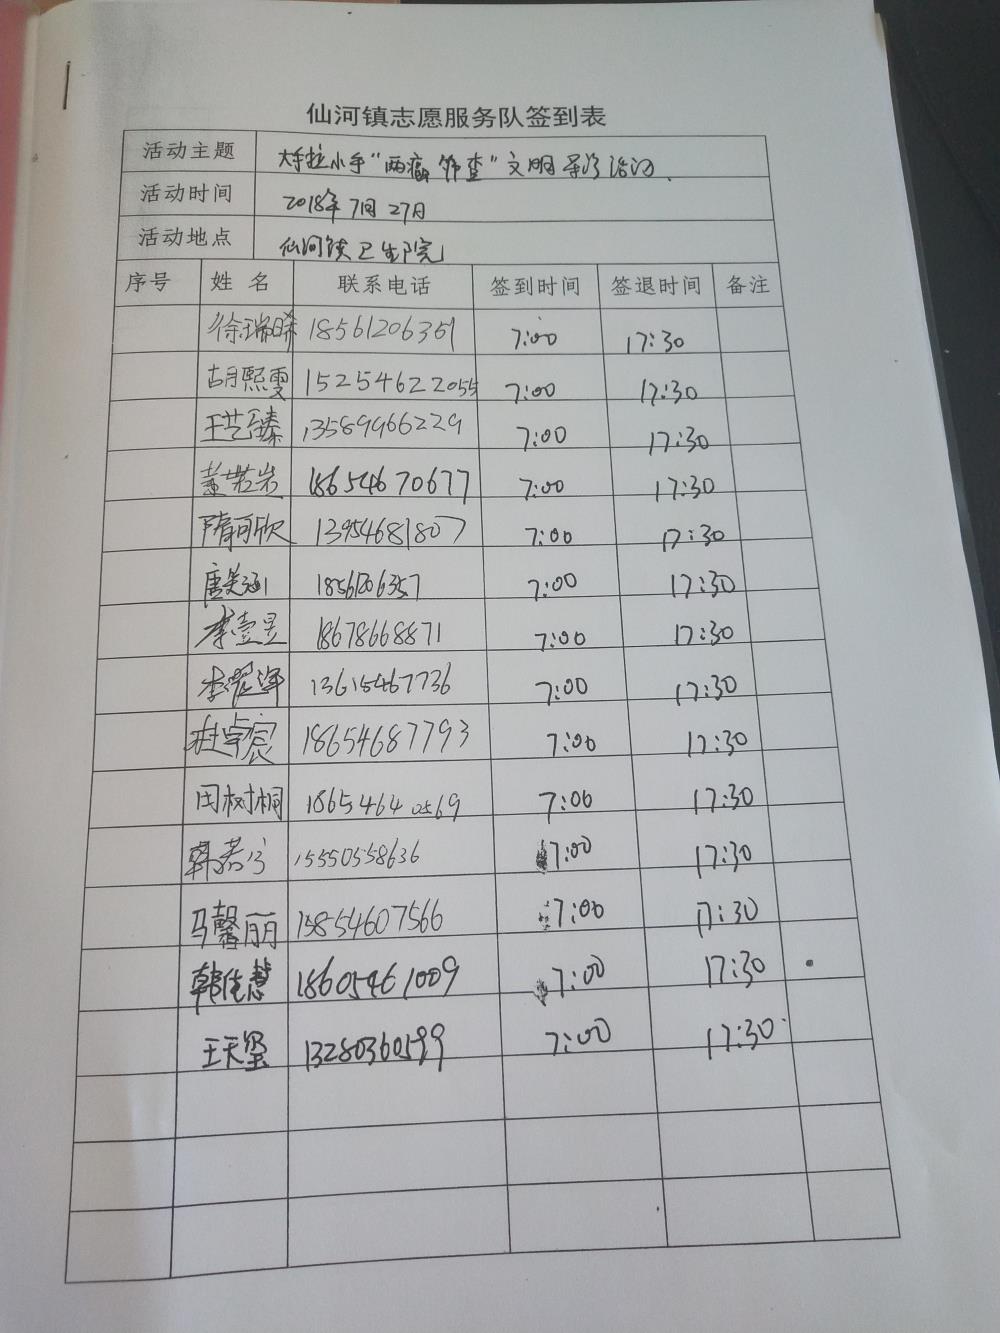 仙河镇志愿服务队签到表
活动主题 大手拉小手“两癌筛查”文明导诊活动.
活动时间 2018年7月27日
活动地点 仙河镇卫生院
序号 姓 名 联系电话 签到时间 签退时间 备注
徐瑞晞 18561206351 7:00 17:30
胡熙雯 15254622055 7:00 17:30
王艺臻 13589966229 7:00 17:30
黄若岩 18654670677 7:00 17:30
隋可欣 13954681807 7:00 17:30
唐美涵 18561206357 7:00 17:30
李壹昱 18678668871 7:00 17:30
李 13615467736 7:00 17:30
杜卓宸 18654687793 7:00 17:30
田树桐 18654640569 7:00 17:30
韩若兮 15550558636 7:00 17:30
马馨丽 15854607566 7:00 17:30
韩佳慧 18605461009 7:00 17:30
王天玺 13280360599 7:00 17:30